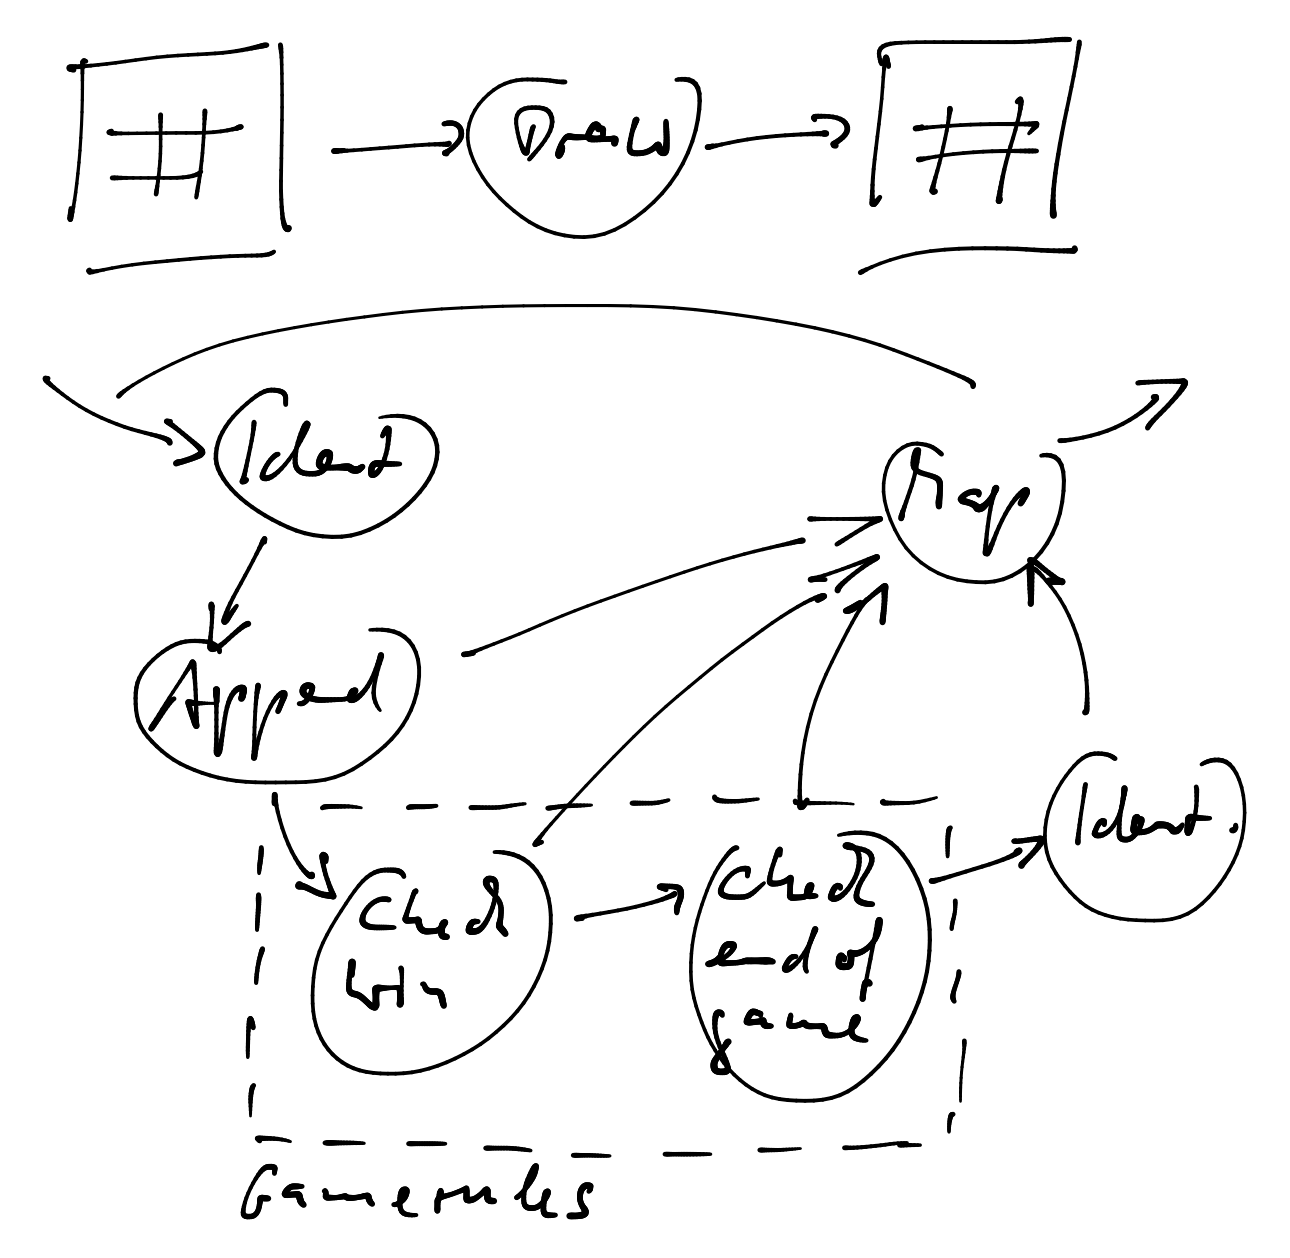 Draw
Ident
Map
Append
Ident.
Check
win
Check
end of
game
Gamerules